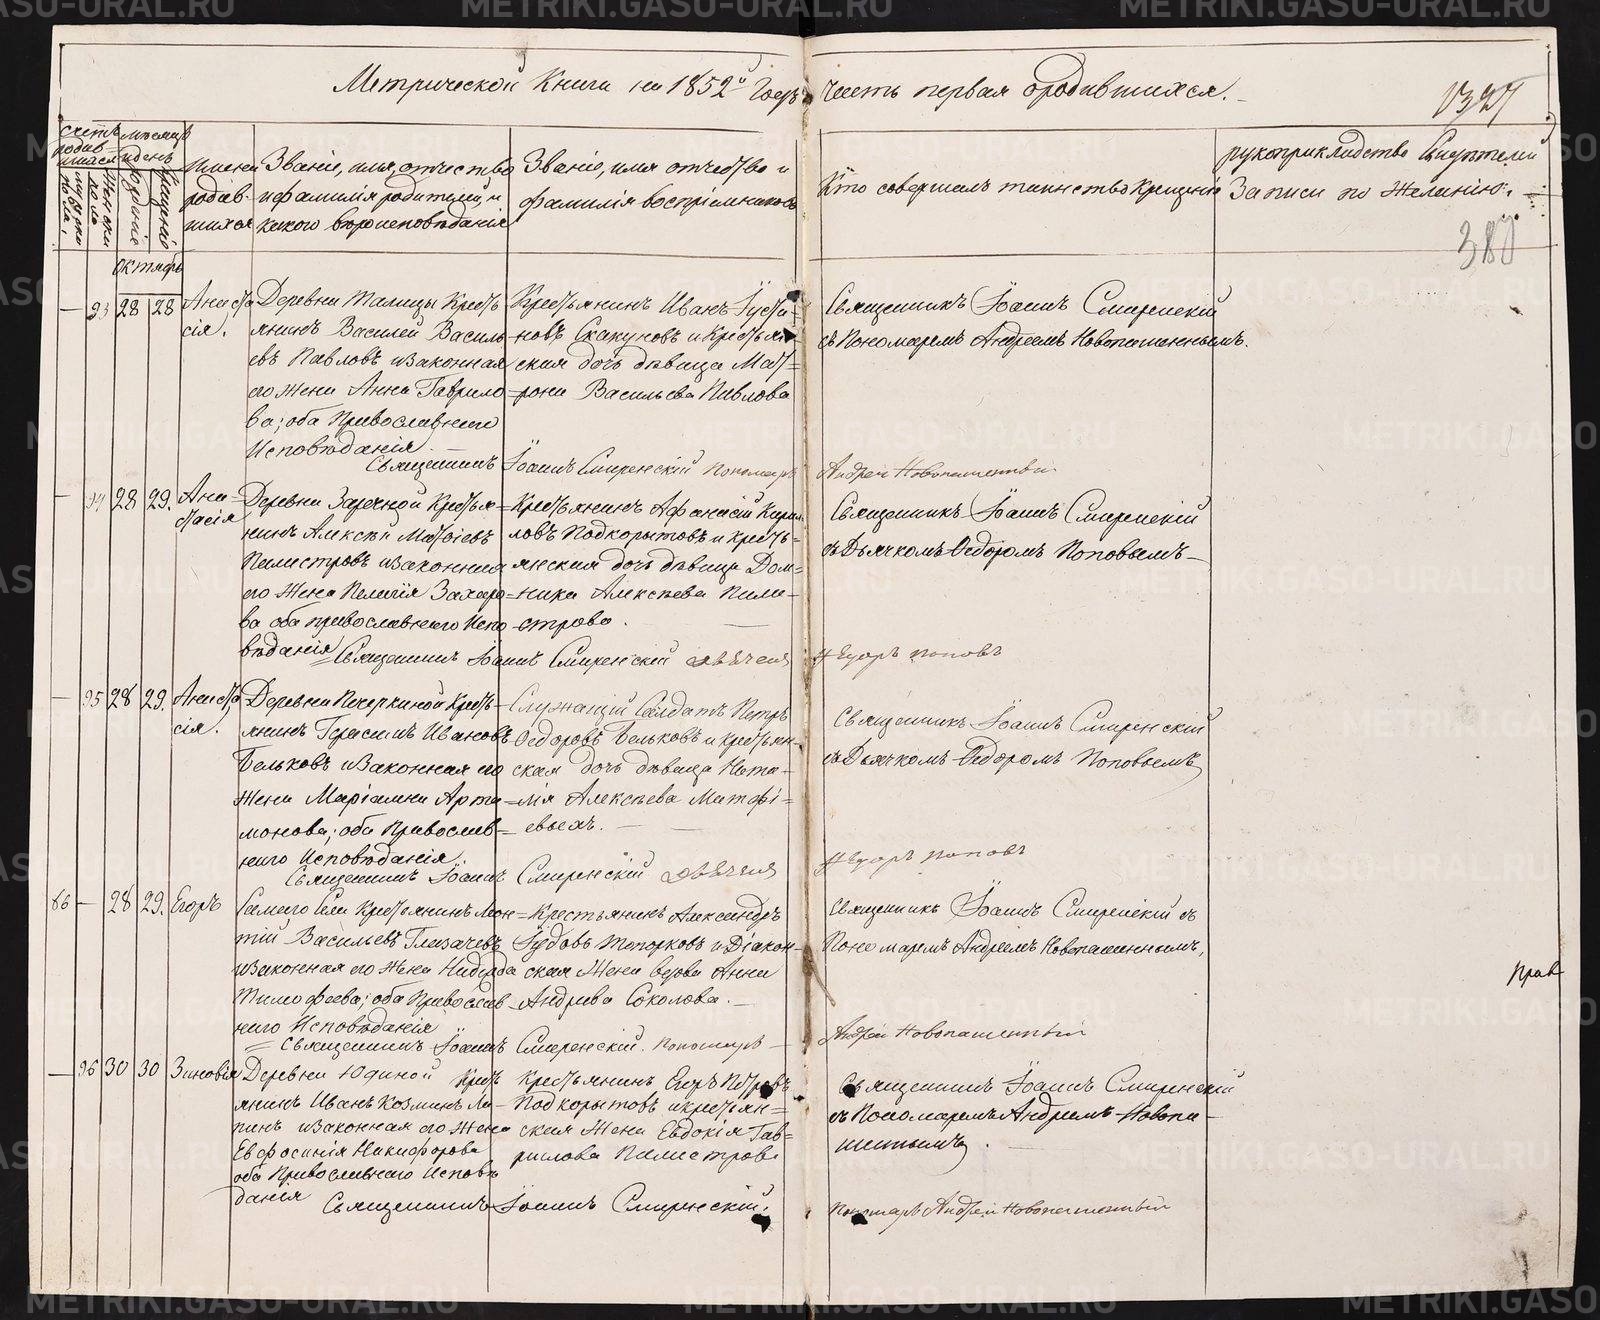 Метрической Книги на 1852й Годъ часть первая ородившихся.
1327
387
счетъ родив-шихся
мужеска пола,
женска полъ
мѣсяцъ и день
рожденіе
крещеніе
Имена родив-шихся
Званіе, имя, отчество и фамилія родителей, и какого вѣроисповѣданія
Званіе, имя отчество и фамилія воспріемниковъ
Кто совершалъ таинство Крещенія
рукоприкладство Свидѣтелей Записи по Желанію:
Октябрь
93 28 28
Анаста
сія.
Деревни Талицы Кресть
янинъ Василей Василь
евъ Павловъ изаконная
его жена Анна Гаврило
ва; оба Православнаго
Исповѣданія
Крестьянинъ Иванъ Густи-
новъ Скакуновъ и Крестья-
ская дочь дѣвица Мат=
рона Васильева Павлова
Священникъ Іоаннъ Смиренскій
съ Пономаремъ Андреемъ Новопашеннымъ.
Священникъ Іоаннъ Смиренскій Пономарь Андрей Новопашенный
94 28 29.
Ана=
стасія
Деревни Заречной Крестья=
нинъ Алексѣй Матвіевъ
Пилистровъ изаконная
его Жена Пелагія Захаро=
ва оба православнаго Испо
вѣданія
Крестьянинъ Афанасій Кирил
ловъ Подкорытовъ и Кресть=
янская дочь дѣвица Дом=
ника Алексѣева Пили-
строва.
Священникъ Іоаннъ Смиренскій
съ Дьячкомъ Ѳедоромъ Поповымъ
Священникъ Іоаннъ Смиренскій дьячекъ Ѳедоръ Поповъ
95 28 29.
Анаста
сія.
Деревни Печеркиной Кресть-
янинъ Герасимъ Ивановъ
Бельковъ изаконная его
жена Маріамна Арта-
монова; оба Православ=
наго Исповѣданія.
Служащій Солдатъ Петръ
Ѳедоровъ Бельковъ и крестьян-
ская дочь дѣвица Ната-
лія Алексѣева Матфі=
евыхъ.
Священникъ Іоаннъ Смиренскій
съ Дьячкомъ Ѳедоромъ Поповымъ
Священникъ Іоаннъ Смиренскій дьячекъ Ѳедоръ Поповъ
86 28 29.
Егоръ
Самаго Села Крестьянинъ Леон=
тій Васильевъ Глазачевъ
изаконная его жена Надежда
Тимофеева; оба Православ
наго Исповѣданія
Крестьянинъ Александръ
Іудовъ Топорковъ и Діакон-
ская Жена вдова Анна
Андрева Соколова.
Священникъ Іоаннъ Смиренскій съ
Пономаремъ Андреемъ Новопашеннымъ,
Прав
Священникъ Іоаннъ Смиренскій. Пономарь Андрей Новопашенный
96 30 30
Зиновія
Деревни Юдиной Кресть
янинъ Иванъ Козминъ Ла-
пинъ изаконная его Жена
Евфросинія Никифорова
оба Православнаго Исповѣ
данія
Крестьянинъ Егоръ Петровъ
Подкорытовъ икрестьян=
ская Жена Евдокія Гав=
рилова Пилистрова
Священникъ Іоаннъ Смиренскій
съ Пономаремъ Андреемъ Новопа-
шеннымъ.
Священникъ Іоаннъ Смиренскій.
Пономарь Андрей Новопашенный
METRIKI.GASU-URAL.RU